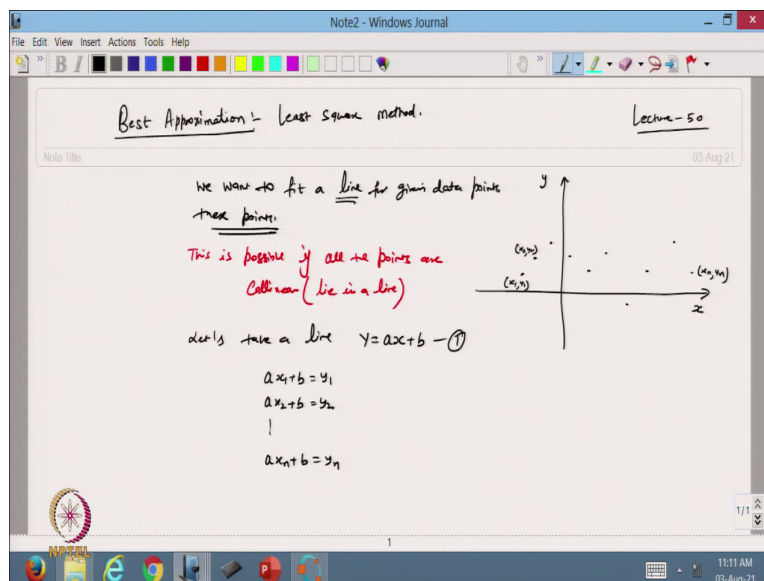 Note2 - Windows Journal
File Edit View Insert Actions Tools Help
Best Approximation :- Least Square method.
Lecture - 50
Note Title
03-Aug-21
We want to fit a line for given data points
these points.
This is possible if all the points are
Collinear (lie in a line)
Let's take a line y = ax+b - ①
ax₁+b = y₁
ax₂+b = y₂
axₙ+b = yₙ
y
(x₂,y₂)
(x₁,y₁)
(xₙ,yₙ)
x
1/1
1
NPTEL
11:11 AM
03-Aug-21